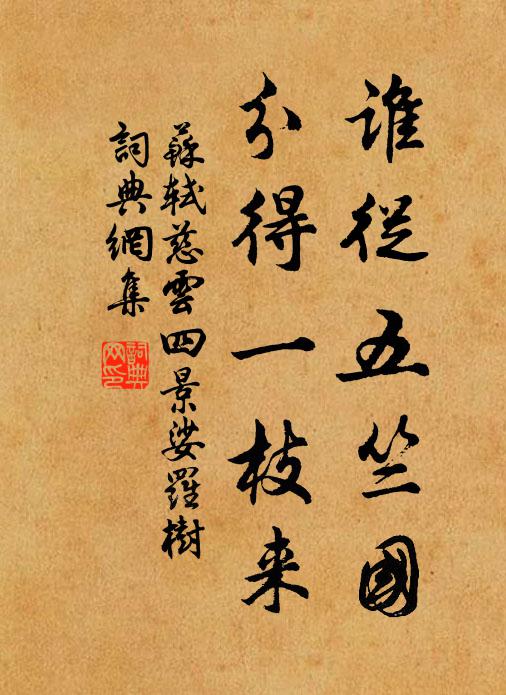 誰從五竺國
分得一枝来
蘇軾慈雲四景娑羅樹
詞典網集
詞典網印